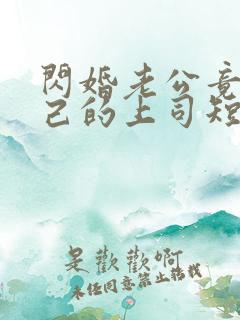 閃婚老公竟
己的上司短
是歡歡啊
未经同意禁止转载